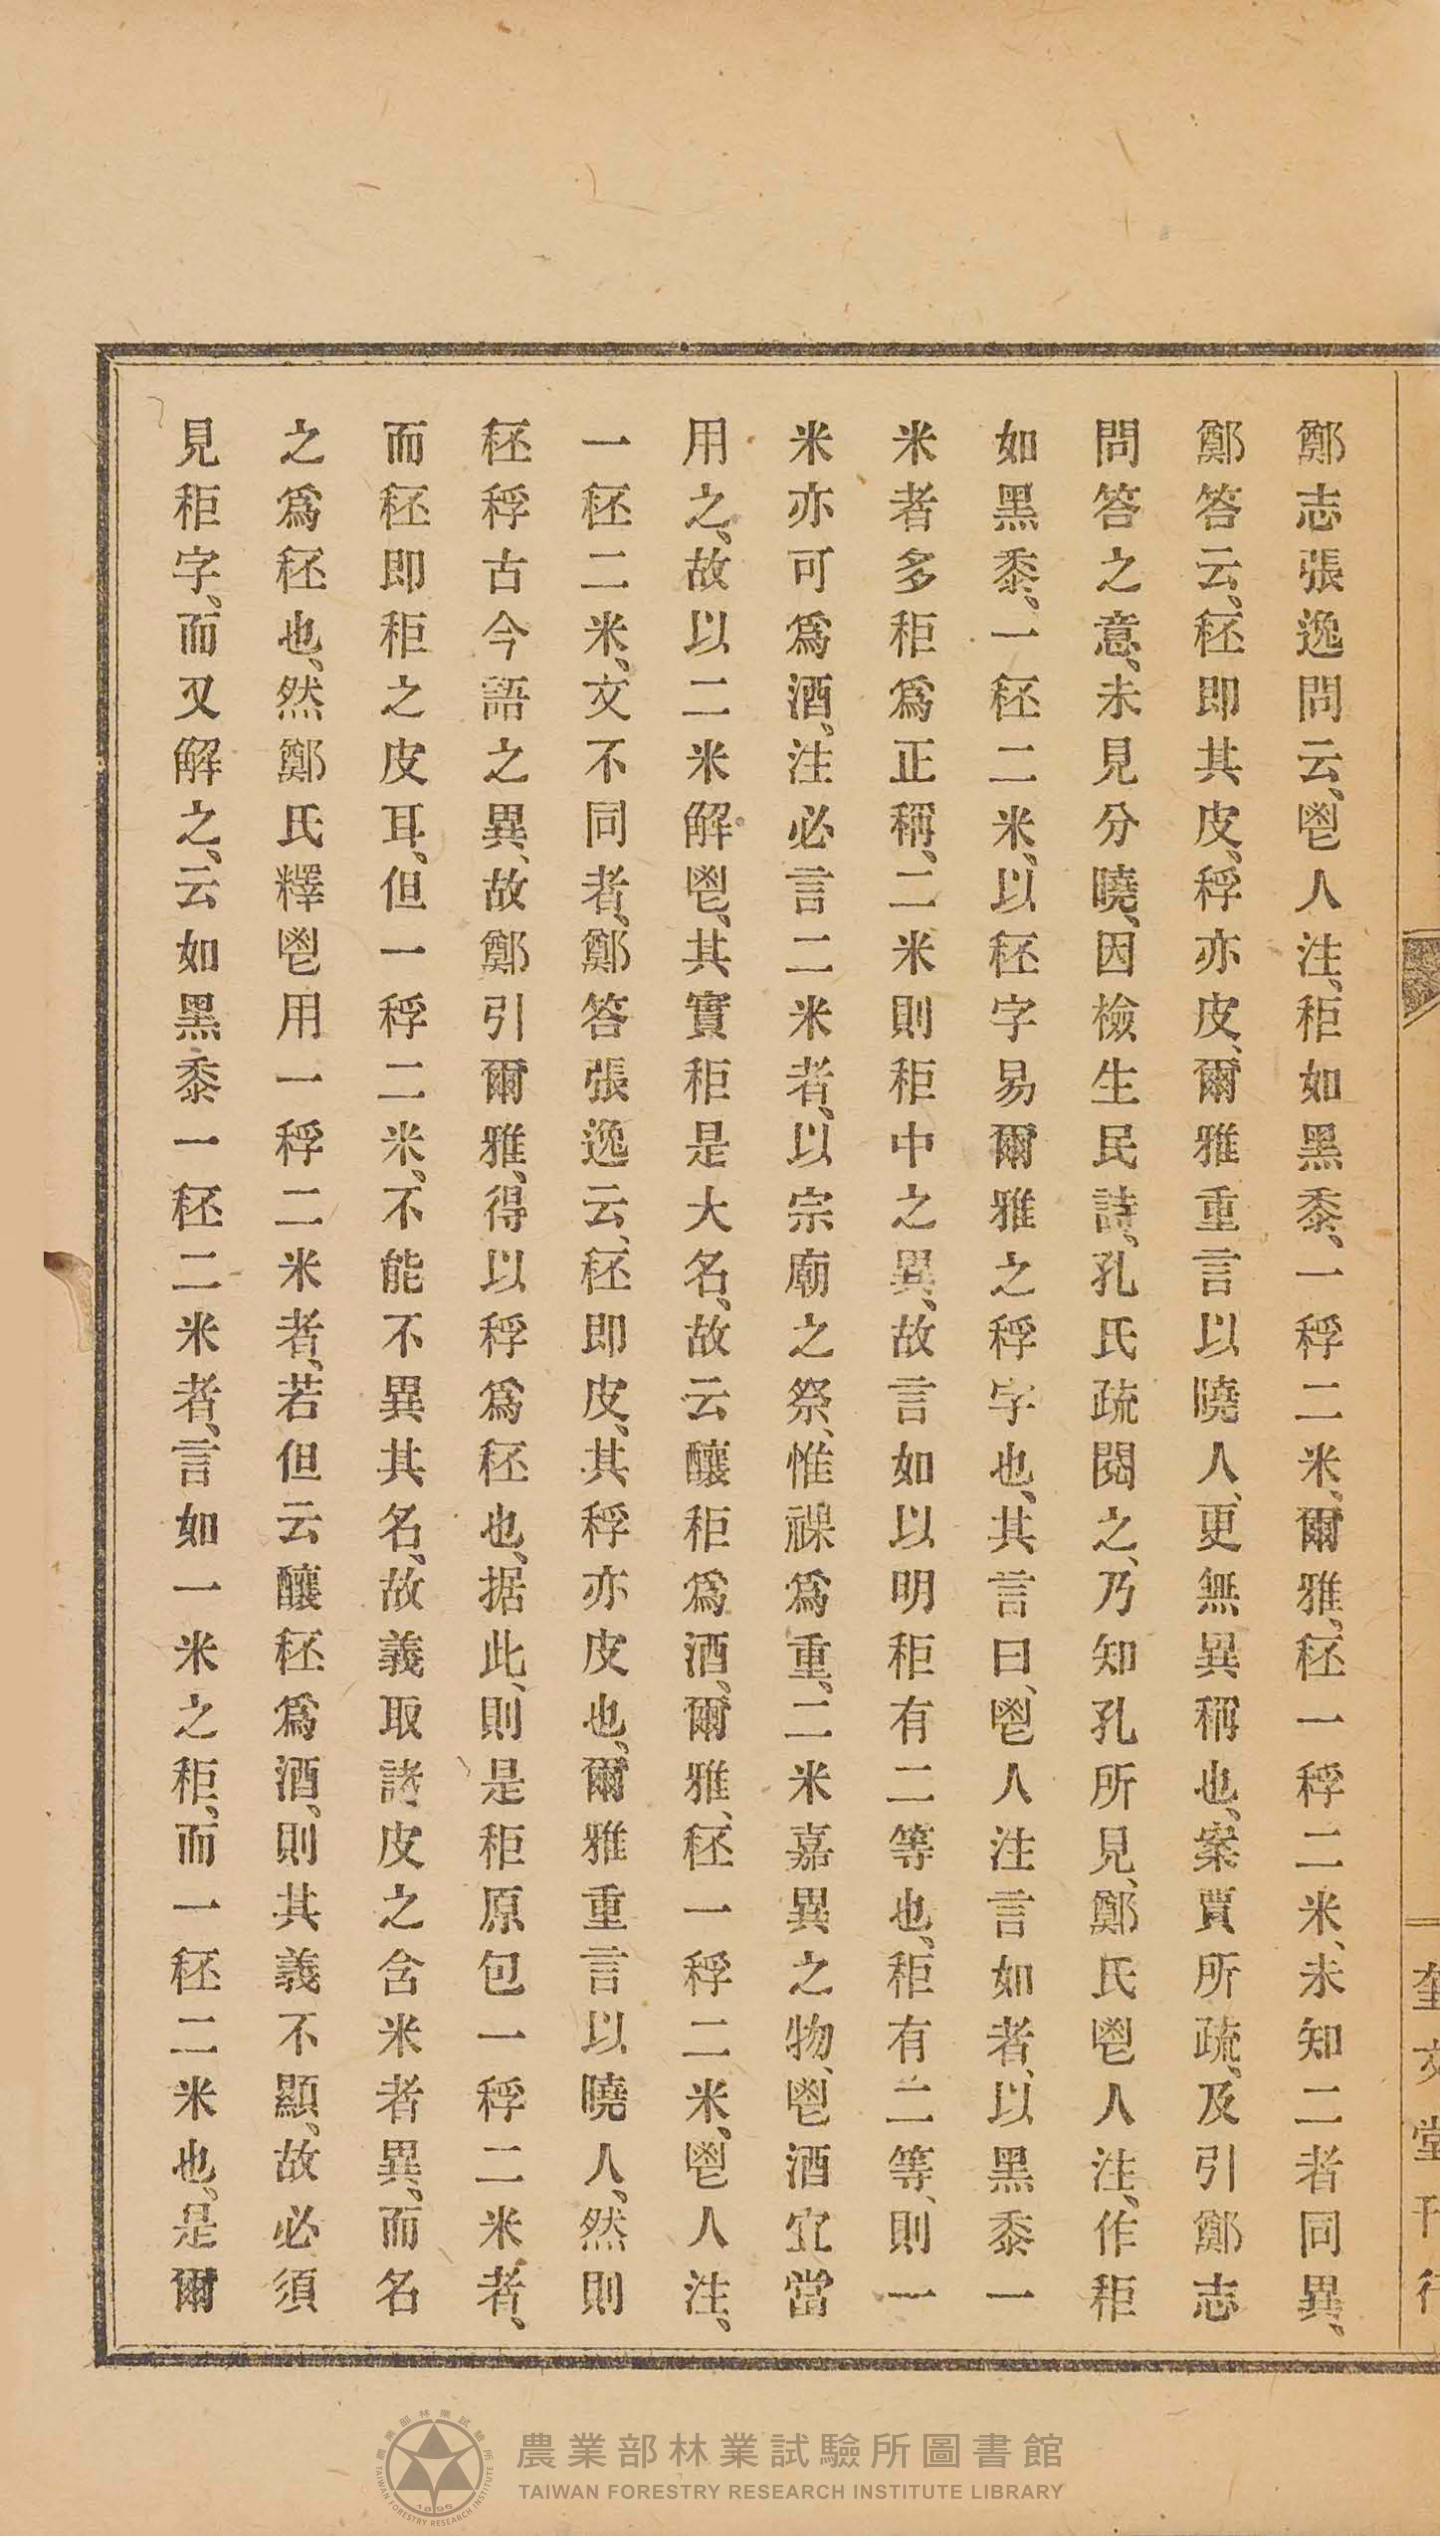 鄭志張逸問云、鬯人注、秬如黑黍、一稃二米、爾雅、秠一稃二米、未知二者同異、
鄭答云、秠即其皮、稃亦皮、爾雅重言以曉人、更無異稱也、案賈所疏、及引鄭志
問答之意、未見分曉、因檢生民詩、孔氏疏閱之、乃知孔所見、鄭氏鬯人注、作秬
如黑黍、一秠二米、以秠字易爾雅之稃字也、其言曰、鬯人注言如者、以黑黍一
米者多秬爲正稱、二米則秬中之異、故言如以明秬有二等也、秬有二等、則一
米亦可爲酒、注必言二米者、以宗廟之祭、惟祼爲重、二米嘉異之物、鬯酒宜當
用之、故以二米解鬯、其實秬是大名、故云釀秬爲酒、爾雅、秠一稃二米、鬯人注、
一秠二米、文不同者、鄭答張逸云、秠即皮、其稃亦皮也、爾雅重言以曉人、然則
秠稃古今語之異、故鄭引爾雅、得以稃爲秠也、据此、則是秬原包一稃二米者、
而秠即秬之皮耳、但一稃二米、不能不異其名、故義取諸皮之含米者異、而名
之爲秠也、然鄭氏釋鬯用一稃二米者、若但云釀秠爲酒、則其義不顯、故必須
見秬字、而又解之、云如黑黍一秠二米者、言如一米之秬、而一秠二米也、是爾
奎文堂刊行
農業部林業試驗所圖書館
TAIWAN FORESTRY RESEARCH INSTITUTE LIBRARY
農業部林業試驗所
TAIWAN FORESTRY RESEARCH INSTITUTE
1895